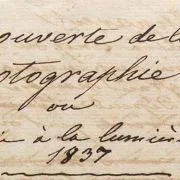 ouverte de la
otographie
ou
à la lumière
1837